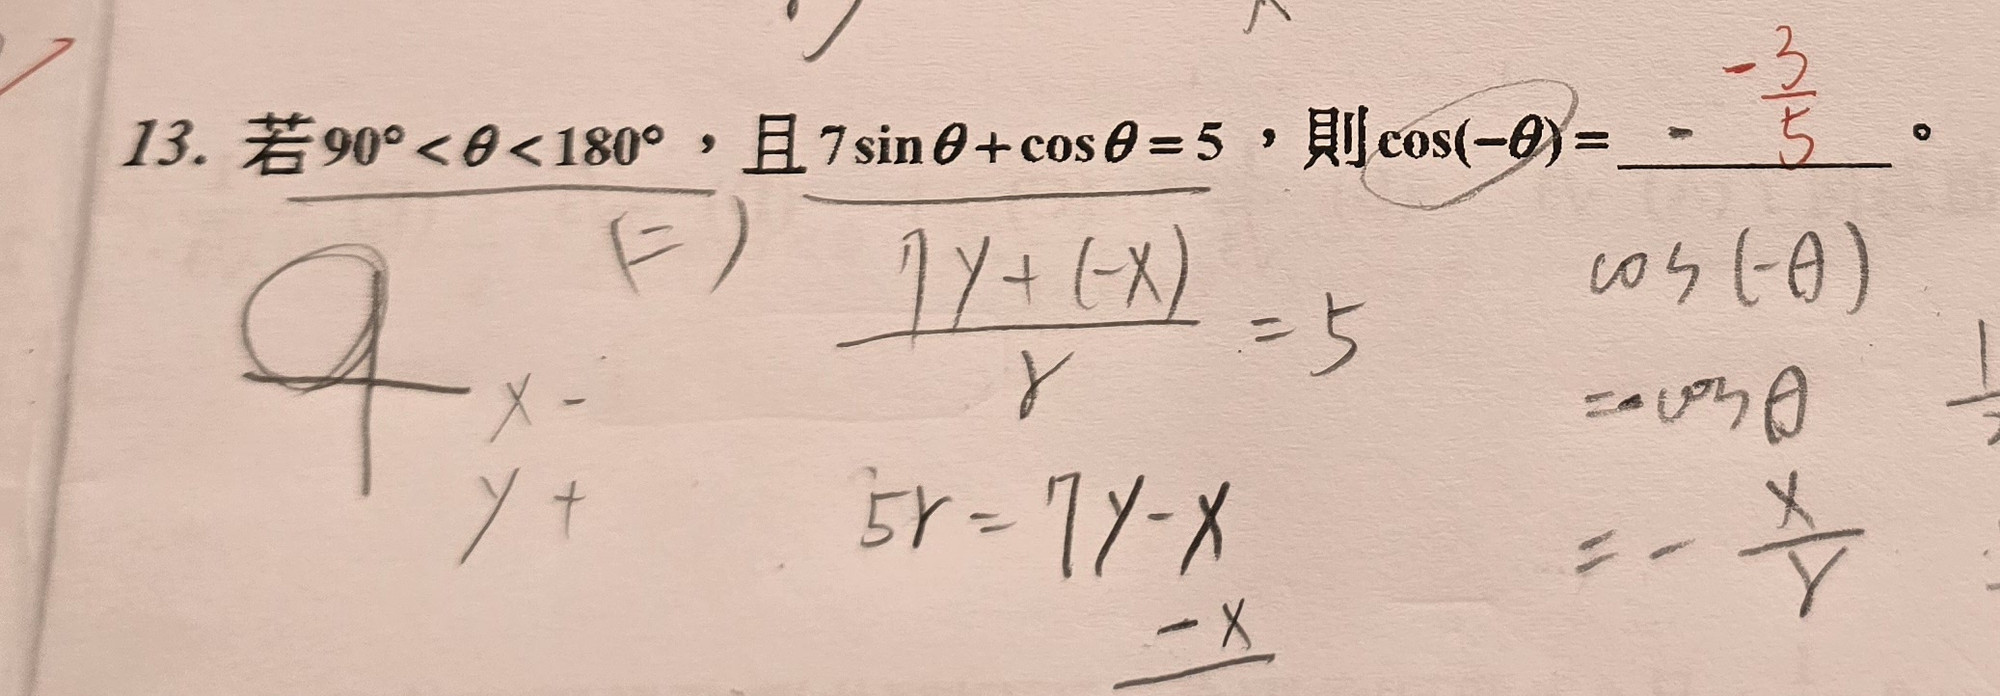 13. 若 90° < θ < 180°，且 7 sin θ + cos θ = 5，則 cos(−θ) = - -3/5 。
(=)
x -
y +
(7y + (-x))/r = 5
5r = 7y - x
-x
cos(-θ)
= - cos θ
= - x/r